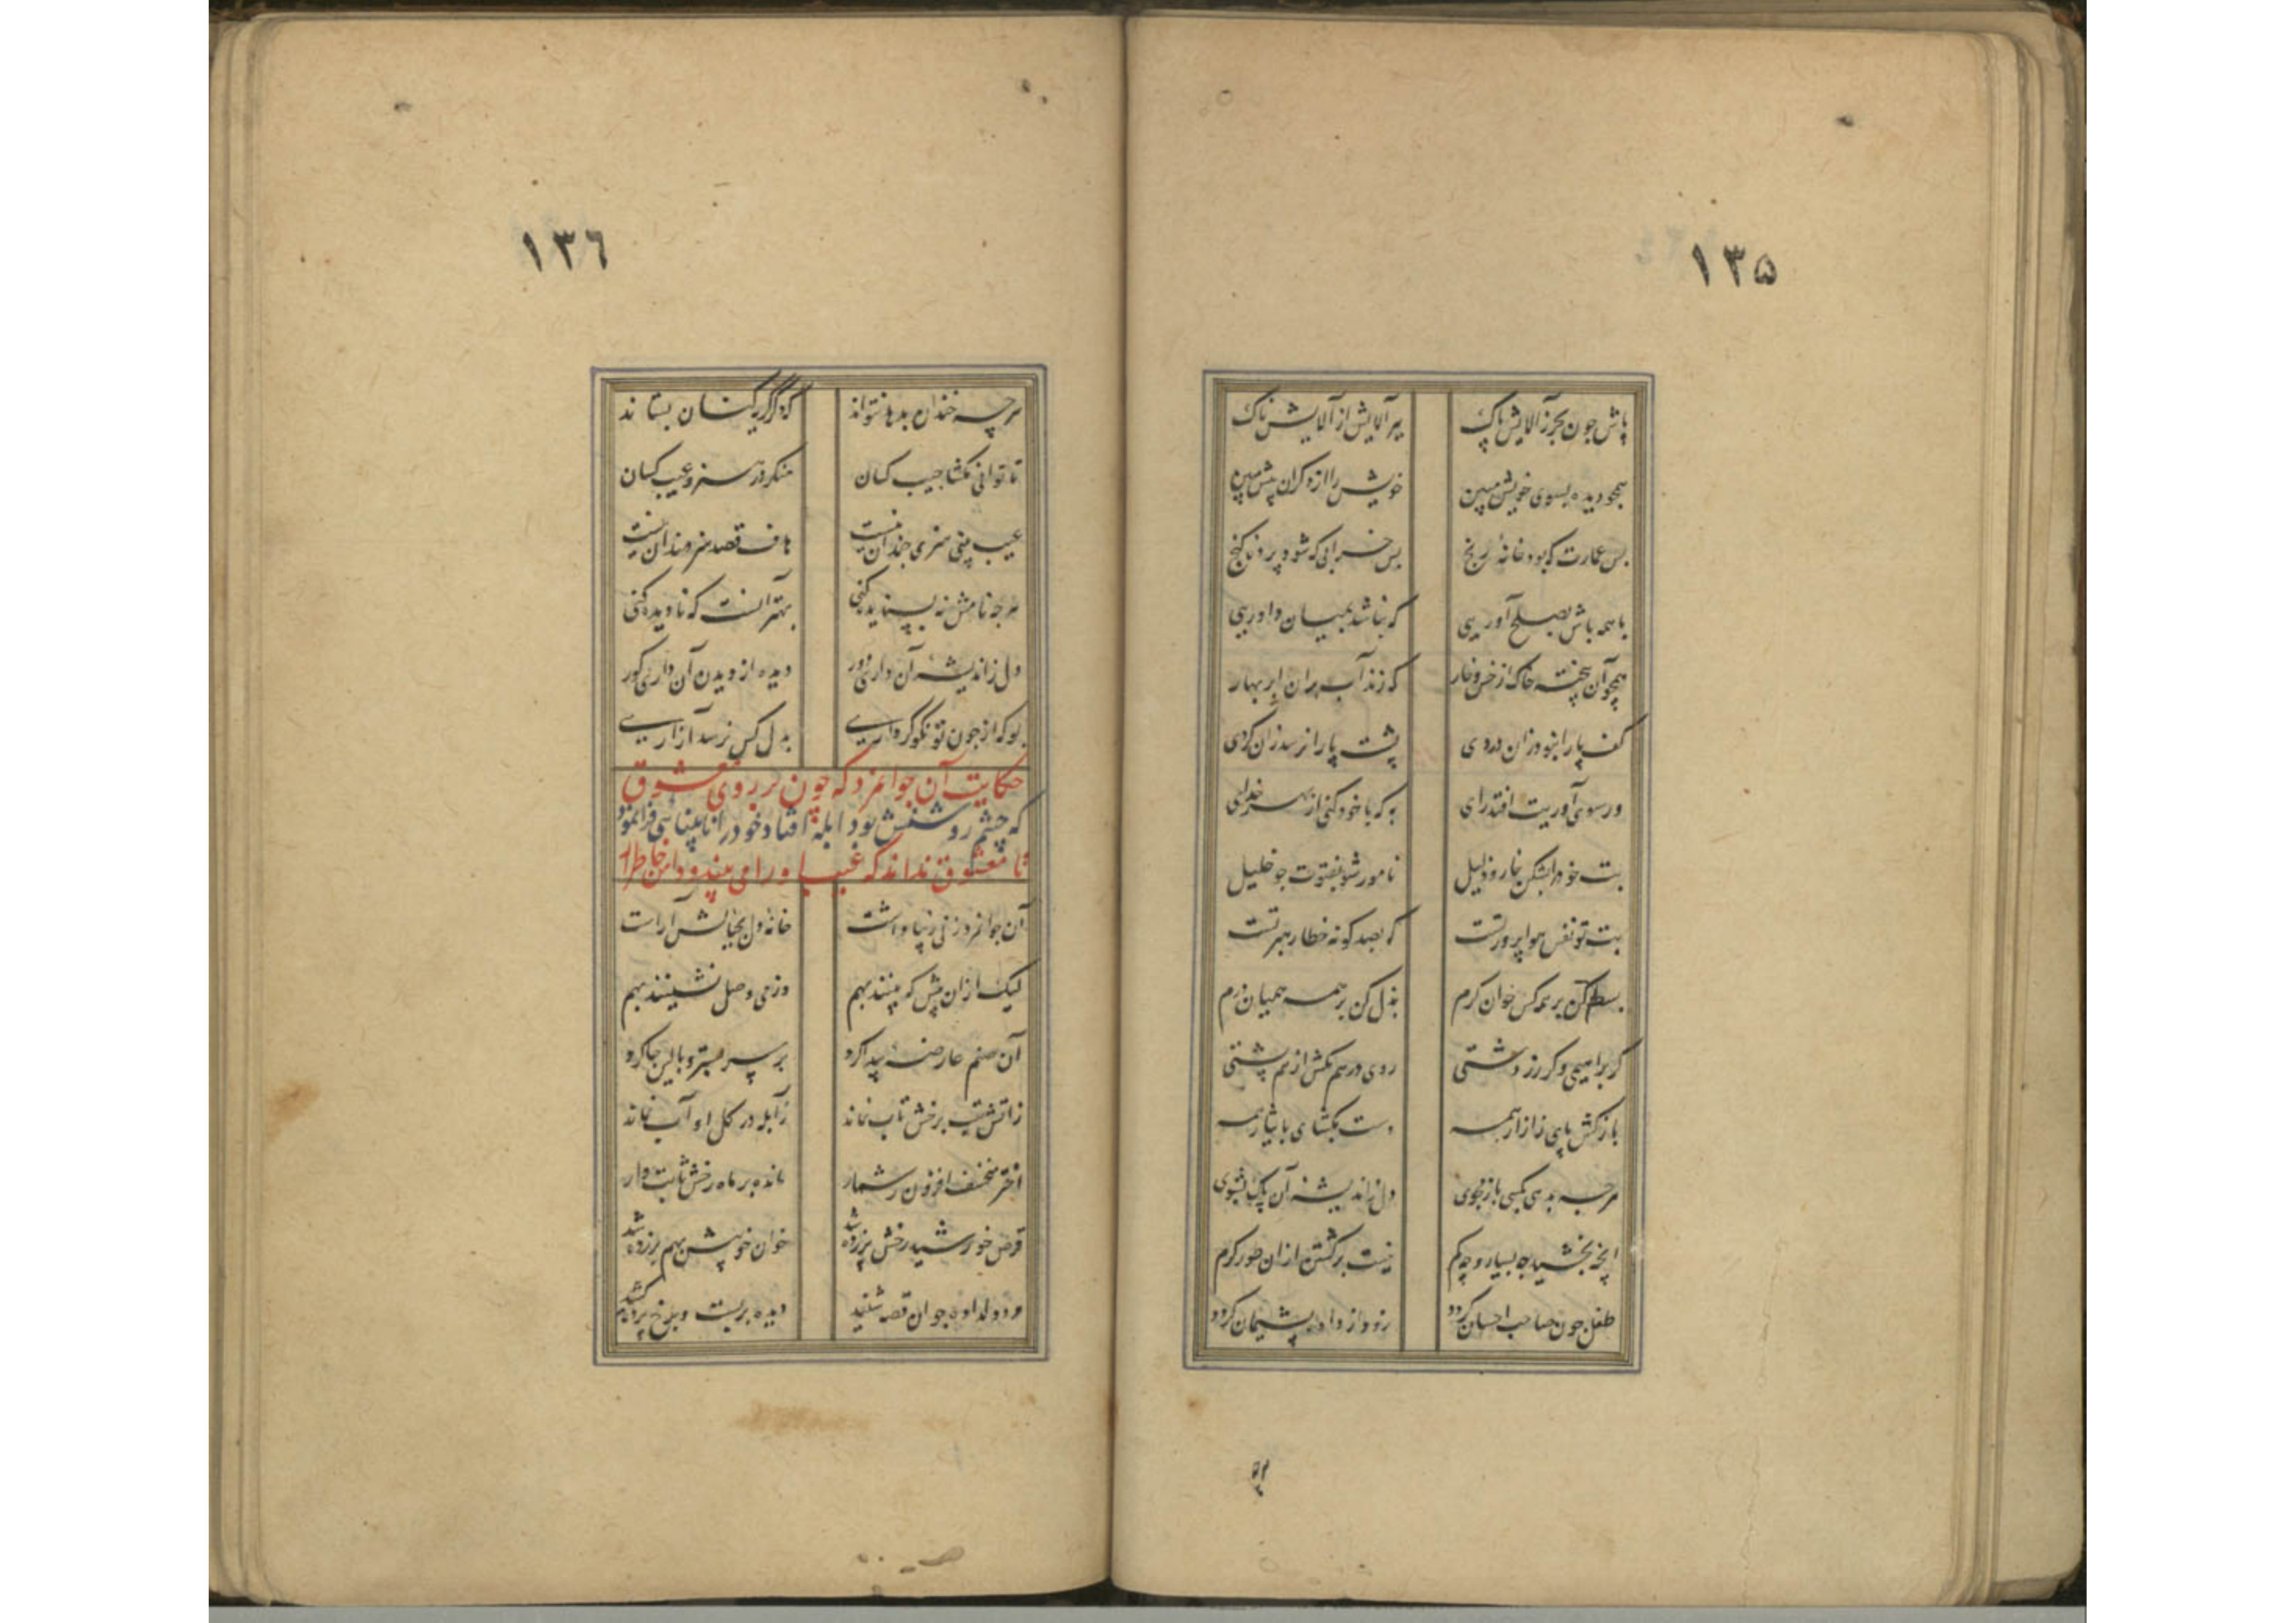 ١٣٥
باش چون بحر ز آلایش پاک ببر آلایش از آلایش ناک
همچو دیده بسوی خویش مبین خویش را از دکران پیش مبین
بس عمارت که بود خانهٔ رنج بس خرابی که شود پرده گنج
با همه باش بصلح آوری که نباشد بمیان داوری
همچو آن پخته خاک از خس و خار که زند آب بر آن ابر بهار
کف پا را نبود زان دردی پشت پا را نرسد زان کردی
ور سوی آوریت افتد رای به که با خود کنی از بهر خدای
بت خود را بشکن خار و ذلیل نامور شو بفتوت چو خلیل
بت تو نفس هوا پرورتست که بصد کونه خطا رهبرتست
بسط کن بر همه کس خوان کرم بذل کن بر همه همیان درم
کر براهیمی و کر زردشتی روی درهم مکش از هم پشتی
باز کش پای ز آزار همه دست بکشای بایثار همه
هرچه بدهی بکسی باز مجوی دل ز اندیشهٔ آن پاک بشوی
آنچه بخشید چه بسیار و چه کم نیست برکشتن از آن طور کرم
طفل چون صاحب احسان کردد زود از داده پشیمان کردد
١٣٦
هرچه خندان بدهد نتواند که دگر گریه کنان بستاند
تا توانی مکشا جیب کسان منکر در هنر و عیب کسان
عیب بینی هنری چندان نیست هدف قصد هنرمندان نیست
هرچه نامش نه پسندیده کنی بهتر آنست که نادیده کنی
دل ز اندیشهٔ آن داری دور دیده از دیدن آن داری کور
بوکه از چون تو نکوکرداری بدل کس نرسد آزاری
حکایت آن جوانمرد که چون بر روی معشوق
که چشم روشنش بود ابله افتاد خود را نابینایی فرا نمود
تا معشوق نداند که عیب او را می بیند
آن جوانمرد زنی زیبا داشت خانهٔ دل بخیالش آراست
لیک از آن پیش که بینند بهم در می وصل نشینند بهم
آن صنم عارضه پیدا کرد بر سر بستر و بالین جا کرد
ز آتش تب برخش تاب نماند ز آبله در کل او آب نماند
اختر منخسف افزون ز شمار مانده بر ماه رخش ثابت وار
قرص خورشید رخش پر زده شد خوان خوبیش بهم بر زده شد
مرد دلداده چو آن قصه شنید دیده بربست